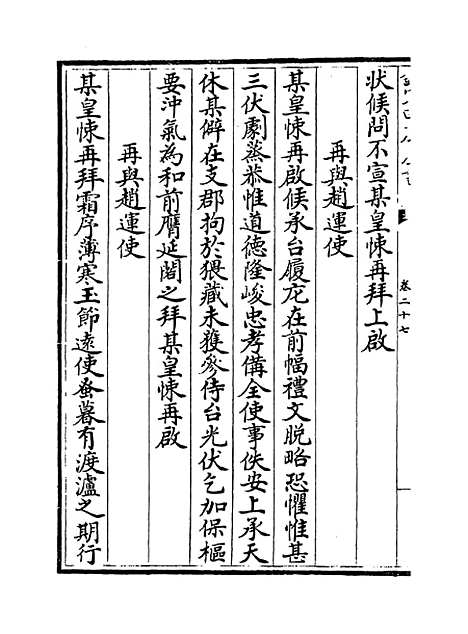 卷二十七
狀候問不宣某皇悚再拜上啟
再與趙運使
某皇悚再啟候承台履尨在前幅禮文脱略恐懼惟甚
三伏劇蒸恭惟道德隆峻忠孝備全使事佚安上承天
休某僻在支郡拘於猥藏未獲參侍台光伏乞加保樞
要沖氣為和前膺延閣之拜某皇悚再啟
再與趙運使
某皇悚再拜霜序薄寒玉節遠使蚤暮有渡瀘之期行